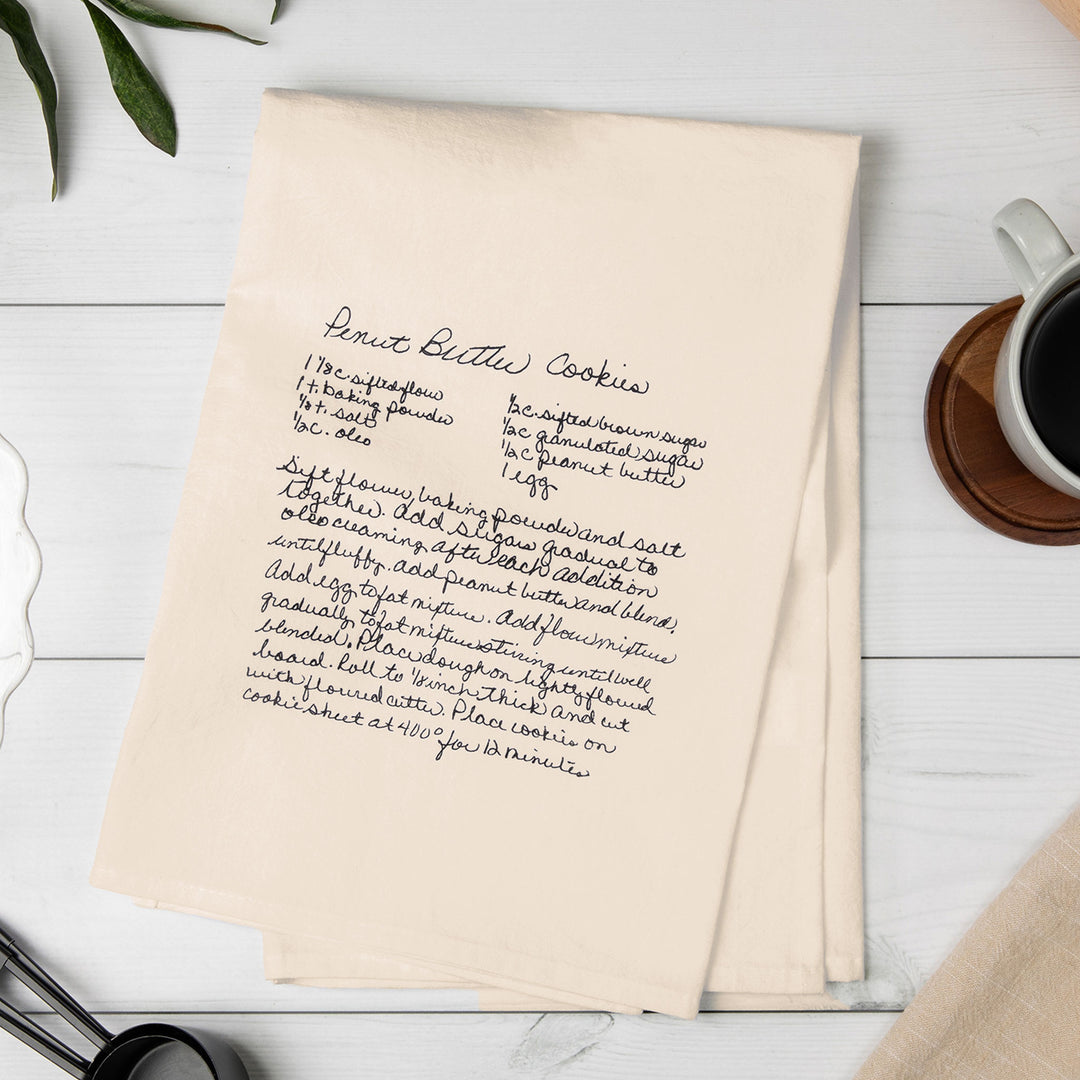 Penut Butter Cookies
1 1/8 c. sifted flour
1 t. baking powder
1/8 t. salt
1/2 c. oleo
1/2 c. sifted brown sugar
1/2 c granulated sugar
1/2 c peanut butter
1 egg
Sift flour, baking powder and salt
together. Add sugars gradual to
oleo creaming after each addition
until fluffy. add peanut butter and blend.
Add egg to fat mixture. Add flour mixture
gradually to fat mixture stiring until well
blended. Place dough on lightly floured
board. Roll to 1/8 inch thick and cut
with floured cutter. Place cookies on
cookie sheet at 400° for 12 minutes